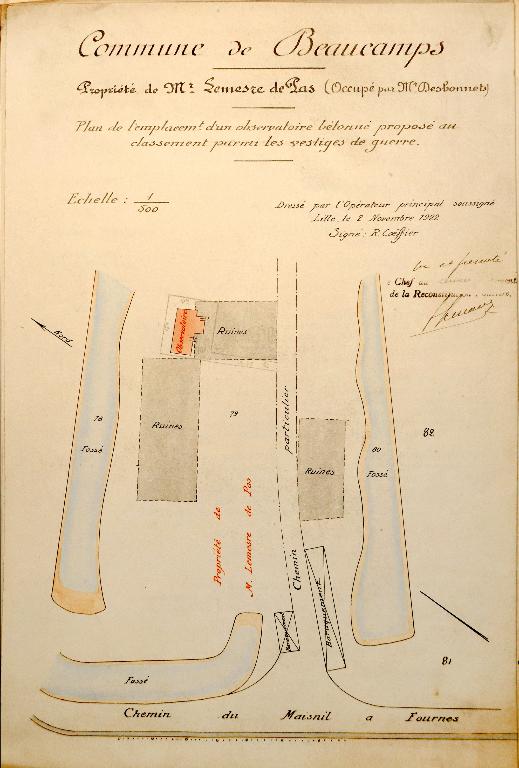 Commune de Beaucamps
Propriété de Mr Lemesre de Pas (Occupé par Mr Desbonnets)
Plan de l'emplacemt d'un observatoire bétonné proposé au
classement parmi les vestiges de guerre.
Echelle : 1/500
Dressé par l'Opérateur principal soussigné
Lille, le 2 Novembre 1922
Signé : R. Cœffier
Vu et présenté
Chef du
de la Reconstitution
Nord
Observatoire
Ruines
78
Fossé
Ruines
79
particulier
Ruines
80
Fossé
82
Propriété de
M. Lemesre de Pas
Chemin
Baraquement
81
Fossé
Chemin du Maisnil a Fournes